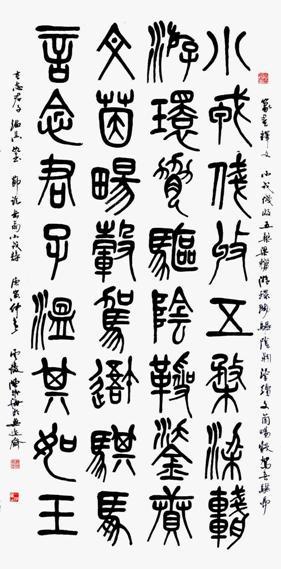 小戎俴收五楘梁輈
游環脅驅陰靷鋈續
文茵暢轂駕吾騏馵
言念君子溫其如玉
篆書釋文 小戎俴收五楘梁輈游環脅驅陰靷鋈續文茵暢轂駕吾騏馵
言念君子溫其如玉